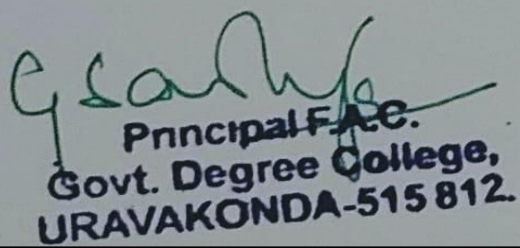 Principal F.A.C.
Govt. Degree College,
URAVAKONDA-515 812.